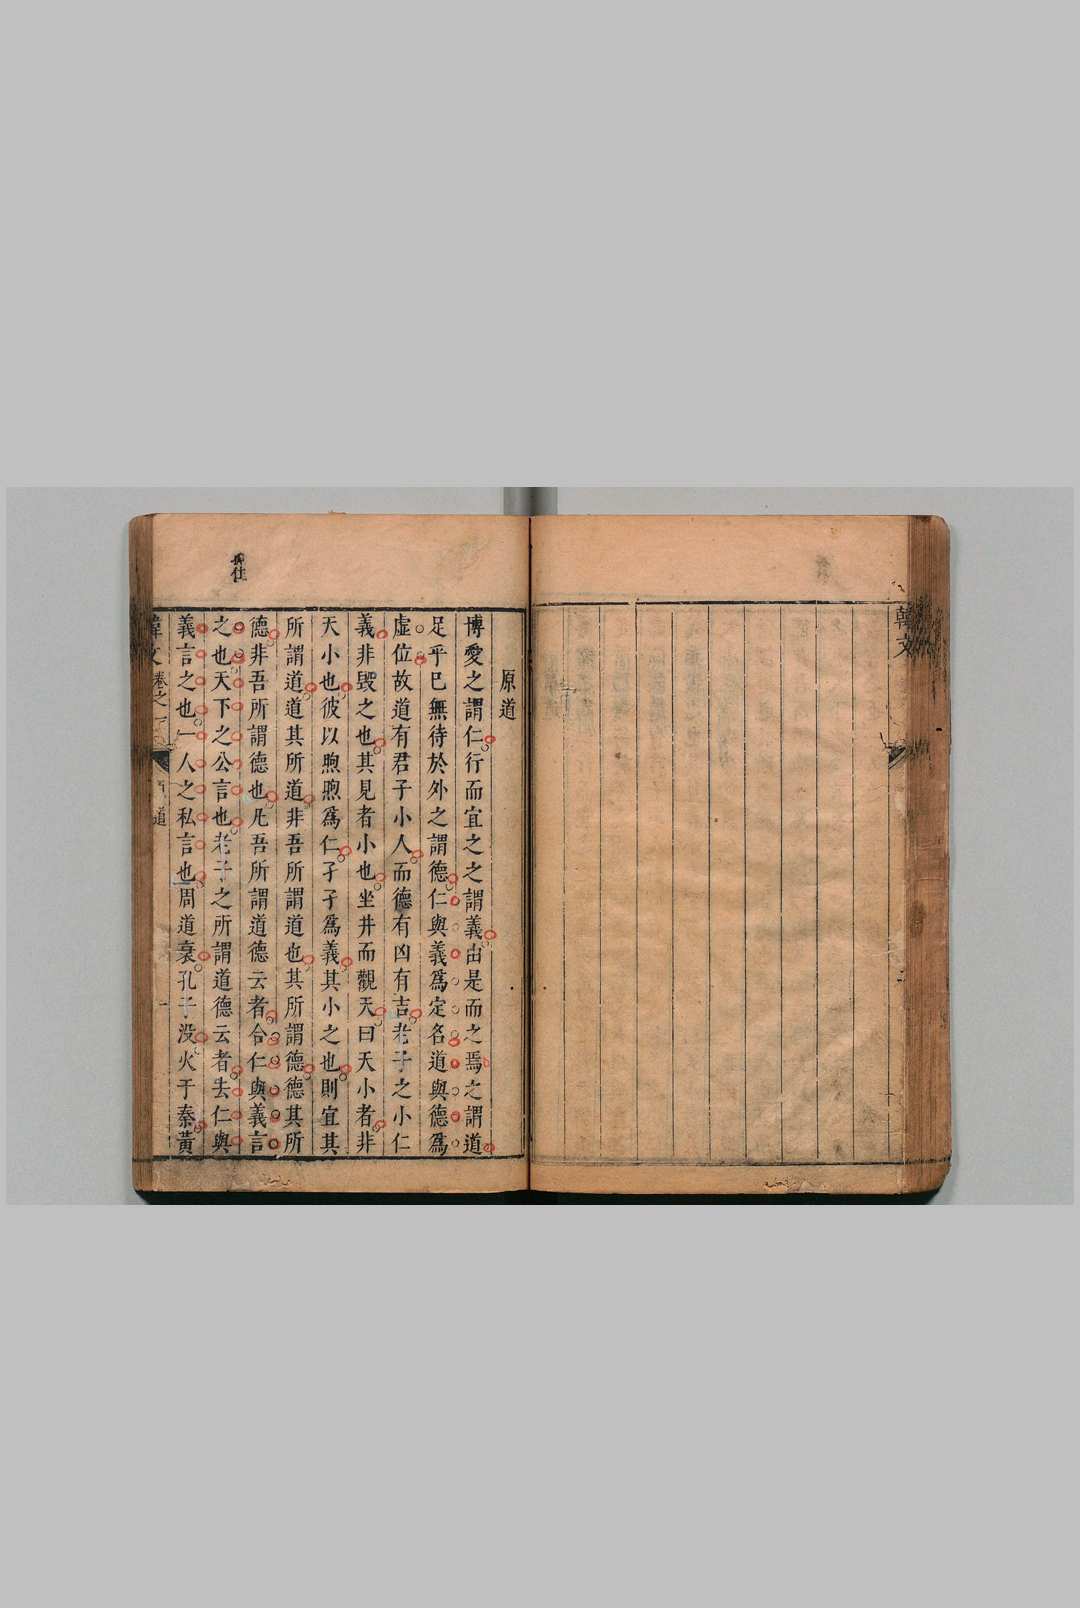 韓文
原道
博愛之謂仁行而宜之之謂義由是而之焉之謂道
足乎已無待於外之謂德仁與義爲定名道與德爲
虛位故道有君子小人而德有凶有吉老子之小仁
義非毀之也其見者小也坐井而觀天曰天小者非
天小也彼以煦煦爲仁孑孑爲義其小之也則宜其
所謂道道其所道非吾所謂道也其所謂德德其所
德非吾所謂德也凡吾所謂道德云者合仁與義言
之也天下之公言也老子之所謂道德云者去仁與
義言之也一人之私言也周道衰孔子没火于秦黃
韓文 卷之一 原道 一